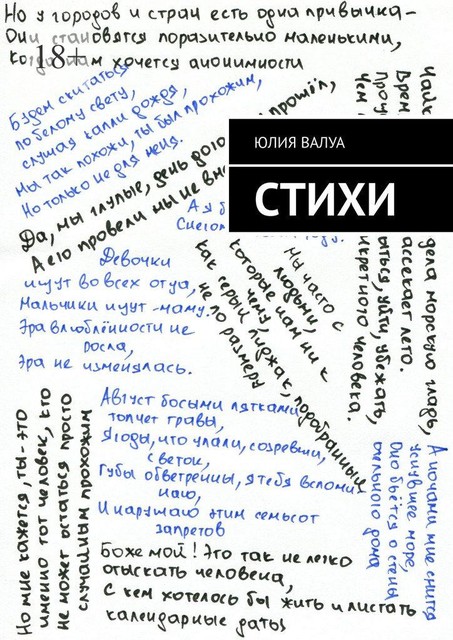 Но у городов и стран есть одна привычка –
Они становятся поразительно маленькими,
Когда нам хочется анонимности
18+
Будем скитаться
по белому свету,
слушая капли дождя,
Мы так похожи, ты был прохожим,
Но только не для меня.
прошёл,
Да, мы глупые, день
А его провели мы не
ЮЛИЯ ВАЛУА
СТИХИ
А я
Девочки
ищут во всех отца,
Мальчики ищут – маму.
Эра влюблённости не
росла,
Эра не изменялась.
Мы часто с
людьми,
которые нам ни к
чему,
как серый пиджак, подобранный
не по размеру
дела морскую гладь,
ассекает лето.
ыться, уйти, убежать,
кретного человека.
Август босыми пятками
топчет травы,
Ягоды, что упали, созревши,
с веток,
Губы обветренны, я тебя вспоми-
наю,
И нарушаю этим семьсот
запретов
А ночами мне снится
уснувшее море,
Оно бьётся о стены
дома
Но мне кажется, ты – это
именно тот человек, кто
не может остаться просто
случайным прохожим
Боже мой! Это так не легко
отыскать человека,
С кем хотелось бы жить и листать
календарные даты